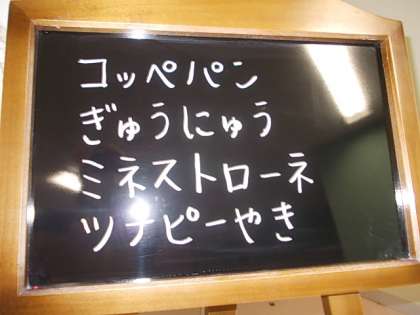 コッペパン
ぎゅうにゅう
ミネストローネ
ツナピーやき